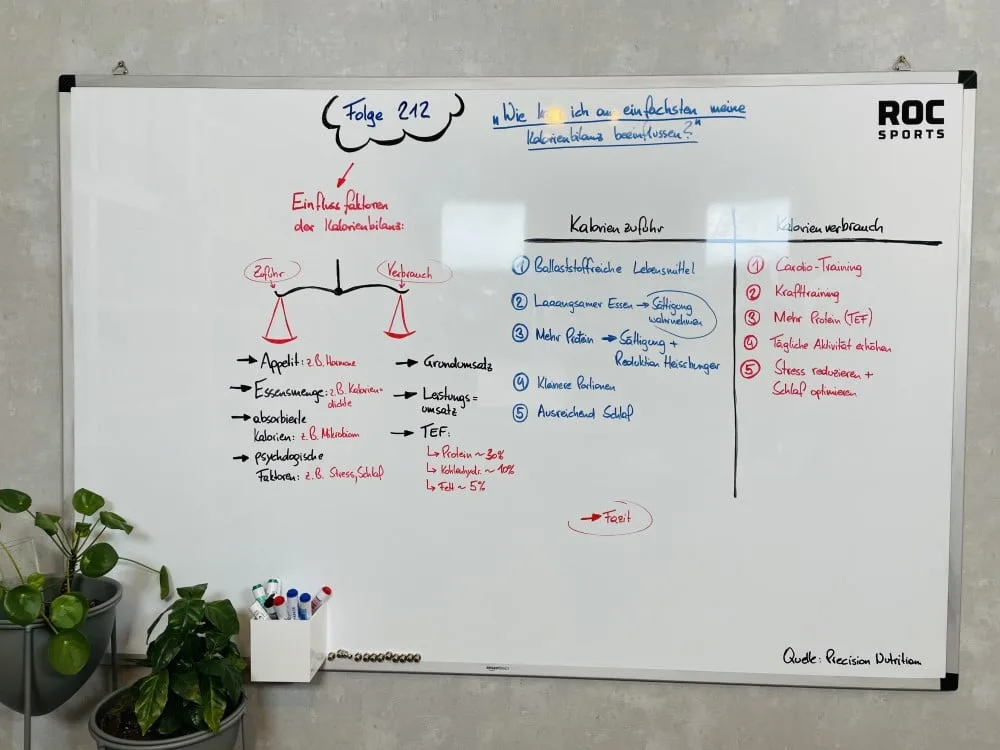 Folge 212
"Wie ich am einfachsten meine
Kalorienbilanz beeinflussen?"
ROC
SPORTS
Einflussfaktoren
der Kalorienbilanz:
Zufuhr
Verbrauch
→ Appetit: z.B. Hormone
→ Essensmenge: z.B. Kalorien=
dichte
→ absorbierte
Kalorien: z.B. Mikrobiom
→ psychologische
Faktoren: z.B. Stress, Schlaf
→ Grundumsatz
→ Leistungs=
umsatz
→ TEF:
↳ Protein ~ 30%
↳ Kohlenhydr. ~ 10%
↳ Fett ~ 5%
Kalorienzufuhr
① Ballaststoffreiche Lebensmittel
② Laaangsamer Essen → Sättigung
wahrnehmen
③ Mehr Protein → Sättigung +
Reduktion Heisshunger
④ Kleinere Portionen
⑤ Ausreichend Schlaf
Kalorienverbrauch
① Cardio-Training
② Krafttraining
③ Mehr Protein (TEF)
④ Tägliche Aktivität erhöhen
⑤ Stress reduzieren +
Schlaf optimieren
→ Fazit
Quelle: Precision Nutrition